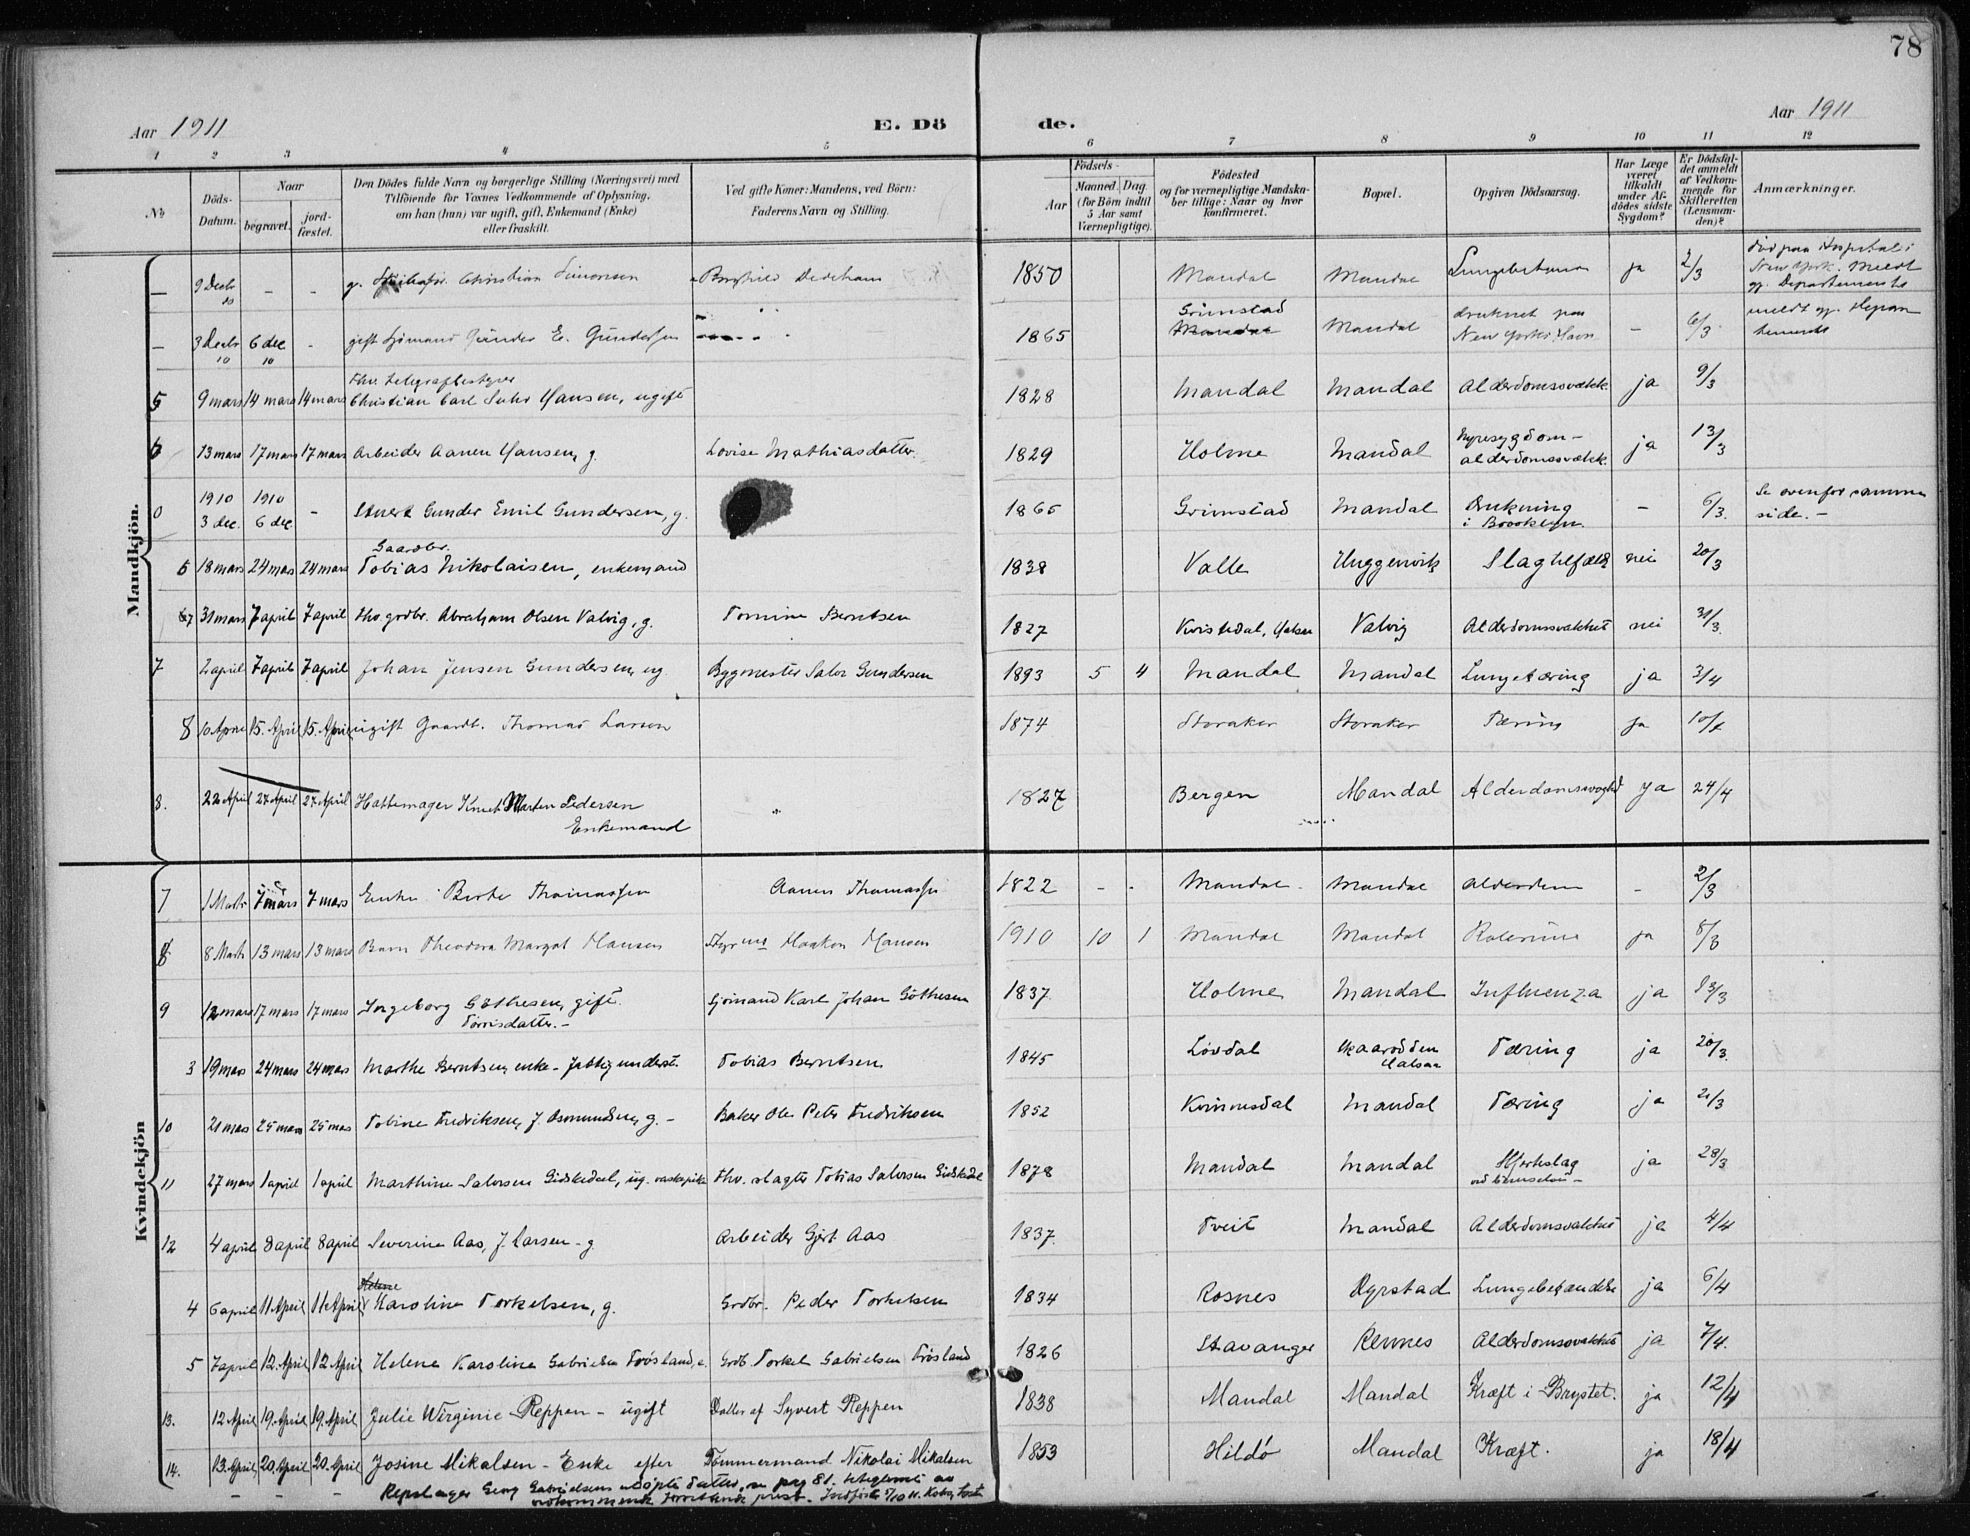 78
Aar 1911
E. Dö de.
Aar 1911
1 2 3 4 5 6 7 8 9 10 11 12
No
Döds-Datum.
Naar
begravet.
jord-fæstet.
Den Dödes fulde Navn og borgerlige Stilling (Næringsvei) med
Tilföiende for Voxnes Vedkommende af Oplysning,
om han (hun) var ugift, gift, Enkemand (Enke)
eller fraskilt.
Ved gifte Koner: Mandens, ved Börn:
Faderens Navn og Stilling.
Födsels-
Aar
Maaned. Dag.
(for Börn indtil
5 Aar samt
Værnepligtige).
Födested
og for værnepligtige Mandska-
ber tillige: Naar og hvor
konfirmeret.
Bopæl.
Opgiven Dödsaarsag.
Har Læge
været
tilkaldt
under Af-
dödes sidste
Sygdom?
Er Dödsfal-
det anmeldt
af Vedkom-
mende for
Skifteretten
(Lensman-
den)?
Anmærkninger.
Mandkjön.
— 9 Decbr 10 - - g. Christian Simonsen Borghild Dedekam 1850 Mandal Mandal ja 2/3 Död paa Hospital i New York. Meldt gj. Departementet
— 3 Decbr 10 6 dec 10 - gift Sjömand Gunder E. Gundersen 1865 Grimstad Mandal Mandal druknet paa New Yorks Havn - 6/3 meldt gj. Departementet
5 9 mars 14 mars 14 mars Fhv. telegrafbestyrer Christian Carl Suhr Hansen, ugift 1828 Mandal Mandal Alderdomssvækk. ja 9/3
6 13 mars 17 mars 17 mars Arbeider Aanen Hansen, g. Lovise Mathiasdatter. 1829 Holme Mandal Nyresygdom - alderdomssvækk. ja 13/3
0 1910 3 dec. 1910 6 dec. - Gunder Emil Gundersen, g. 1865 Grimstad Mandal Drukning i Brooklyn. - 6/3. Se ovenfor samme side. -
5 18 mars 24 mars 24 mars Gaardbr. Tobias Nikolaisen, enkemand 1838 Valle Unggenvik Slagtilfælde nei 20/3
7 31 mars 7 april 7 april fhv. grdbr. Abraham Olsen Valvig, g. Tomine Berntsen 1827 Kvistedal, Valvig Alderdomssvækkel nei 31/3.
7 2 april 7 april 7 april Johan Jensen Gundersen, ug. Bygmester Salve Gundersen 1893 5 4 Mandal Mandal Lungetæring ja 3/4
8 10 April 15. April 15. April ugift Gaardb. Thomas Larsen 1874 Storaker Storaker Tæring ja 10/4
8. 22 April 27 April 27 April Hattemager Knut Morten Pedersen Enkemand " 1827 Bergen Mandal Alderdomssvaghed ja 24/4
Kvindekjön
7 1 Marts 7 mars 7 mars Enke Berte Thomassen Aanen Thomassen 1822 - - Mandal Mandal Alderdom - 2/3
8 8 Marts 13 mars 13 mars Barn Theodora Margot Hansen Styrmd Haakon Hansen 1910 10 1 Mandal Mandal ja 8/3
9 12 mars 17 mars 17 mars Ingeborg Göthesen, gift. Torrisdatter. - Sjömand Karl Johan Göthesen 1837 Holme Mandal Influenza ja 13/3
3 19 mars 24 mars 24 mars Marthe Berntsen, enke - fattigunderst. Tobias Berntsen 1845 Lovdal Skaarodden Halsaa Tæring ja 20/3.
10 21 mars 25 mars 25 mars Tobine Fredriksen, f. Osmundsen, g. - Baker Ole Peter Fredriksen 1852 Kvinnesdal Mandal Tæring ja 21/3
11 27 mars 1 april 1 april Marthine Salvesen Gidskedal, ug. vaskepike fhv. slagter Tobias Salvesen Gidskedal 1878 Mandal Mandal Hjerteslag ja 28/3
12 4 april 8 april 8 april Severine Aas, f. Larsen - g Arbeider Gjert Aas 1837. Tveit Mandal Alderdomsvakket ja 4/4
4 6 april 11 April 11 April Helene Karoline Torkelsen, g. Grdbr. Peder Torkelsen 1834 Rosnes Dyrstad Lungebetændelse ja 6/4
5 7 april 12. April 12 April Helene Karoline Gabrielsen Frösland, e. Grdb Torkel Gabrielsen Frösland 1826 Stavanger Rennes Alderdomssvakket ja 7/4.
13. 12 April 19. April 19. April Julie Wirginie Reppen - ugift Datter af Syvert Reppen 1838 Mandal Mandal Kræft i Brystet. ja 12/4
14. 13. April 20. April 20. April Josine Mikalsen - Enke efter Tömmermand Nikolai Mikalsen 1853 Hildö Mandal Kræft. ja 18/4
— — — Repslager Georg Gabrielsens udöpte datter, se pag 81.
Indfört 5/10 11.